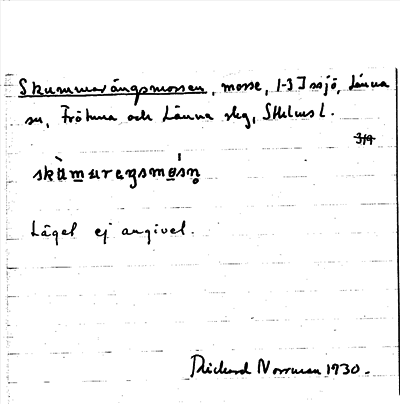 Skummarängsmossen, mosse, 1-3 Issjö, Länna
sn, Frötuna och Länna slg, Sthlms l.
3/9
skùmureŋsmósn̥
Läget ej angivet.
Rickard Norrman 1930.